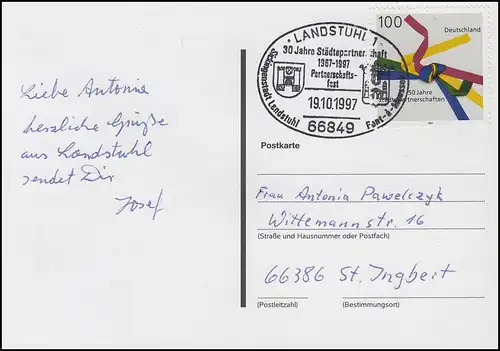 Liebe Antonia
herzliche Grüße
aus Landstuhl
sendet Dir
Josef
LANDSTUHL 1
30 Jahre Städtepartnerschaft
1967-1997
Partnerschafts-
fest
19.10.1997
66849
Sickingenstadt Landstuhl
Pont-à-Mousson
100
Deutschland
50 Jahre
Städtepartnerschaften
Postkarte
Frau Antonia Pawelczyk
Wittemannstr. 16
(Straße und Hausnummer oder Postfach)
66386 St. Ingbert
(Postleitzahl) (Bestimmungsort)